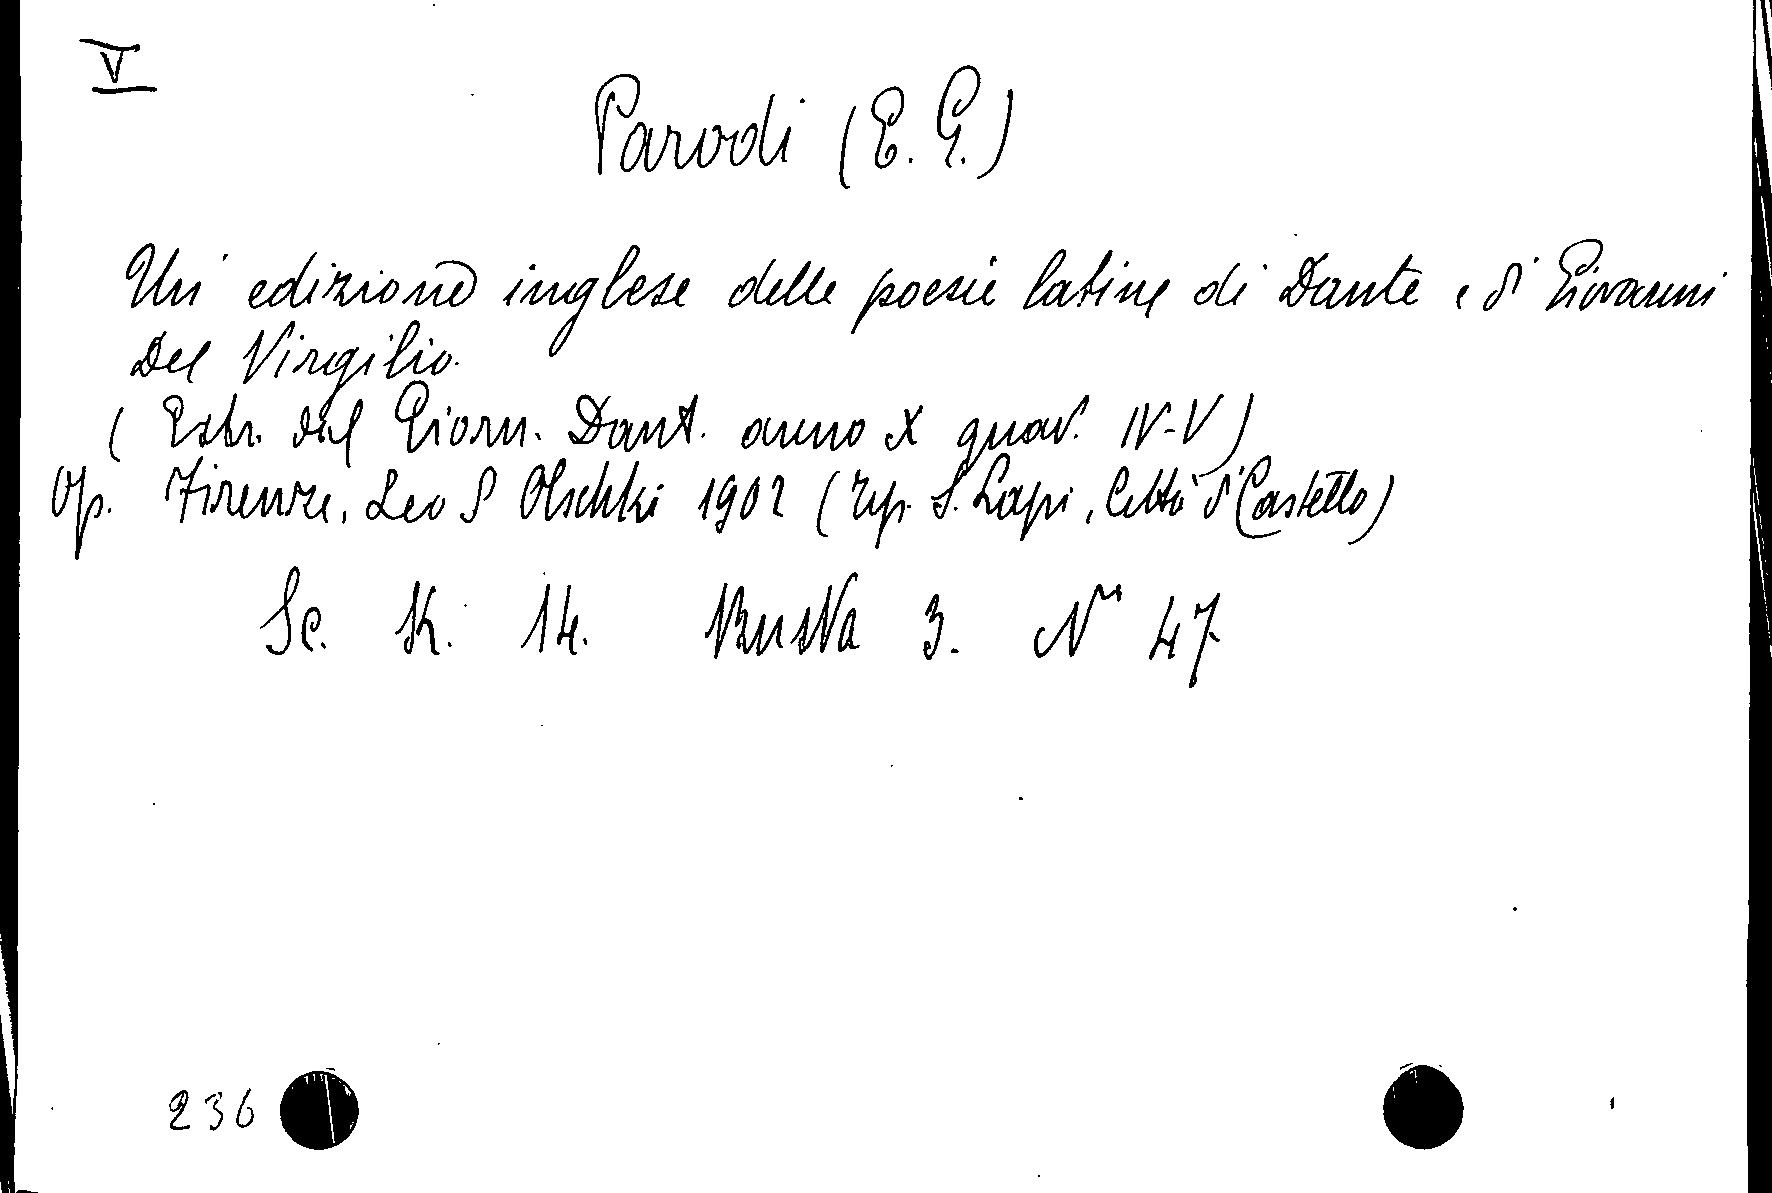 V
Parodi (E. G.)
Un' edizione inglese delle poesie latine di Dante e di Giovanni
Del Virgilio.
( Estr. dal Giorn. Dant. anno X quad. IV-V )
Op. Firenze, Leo S Olschki 1902 ( Tip. S. Lapi, Città di Castello)
Sc. K. 14. Busta 3. N° 47
236